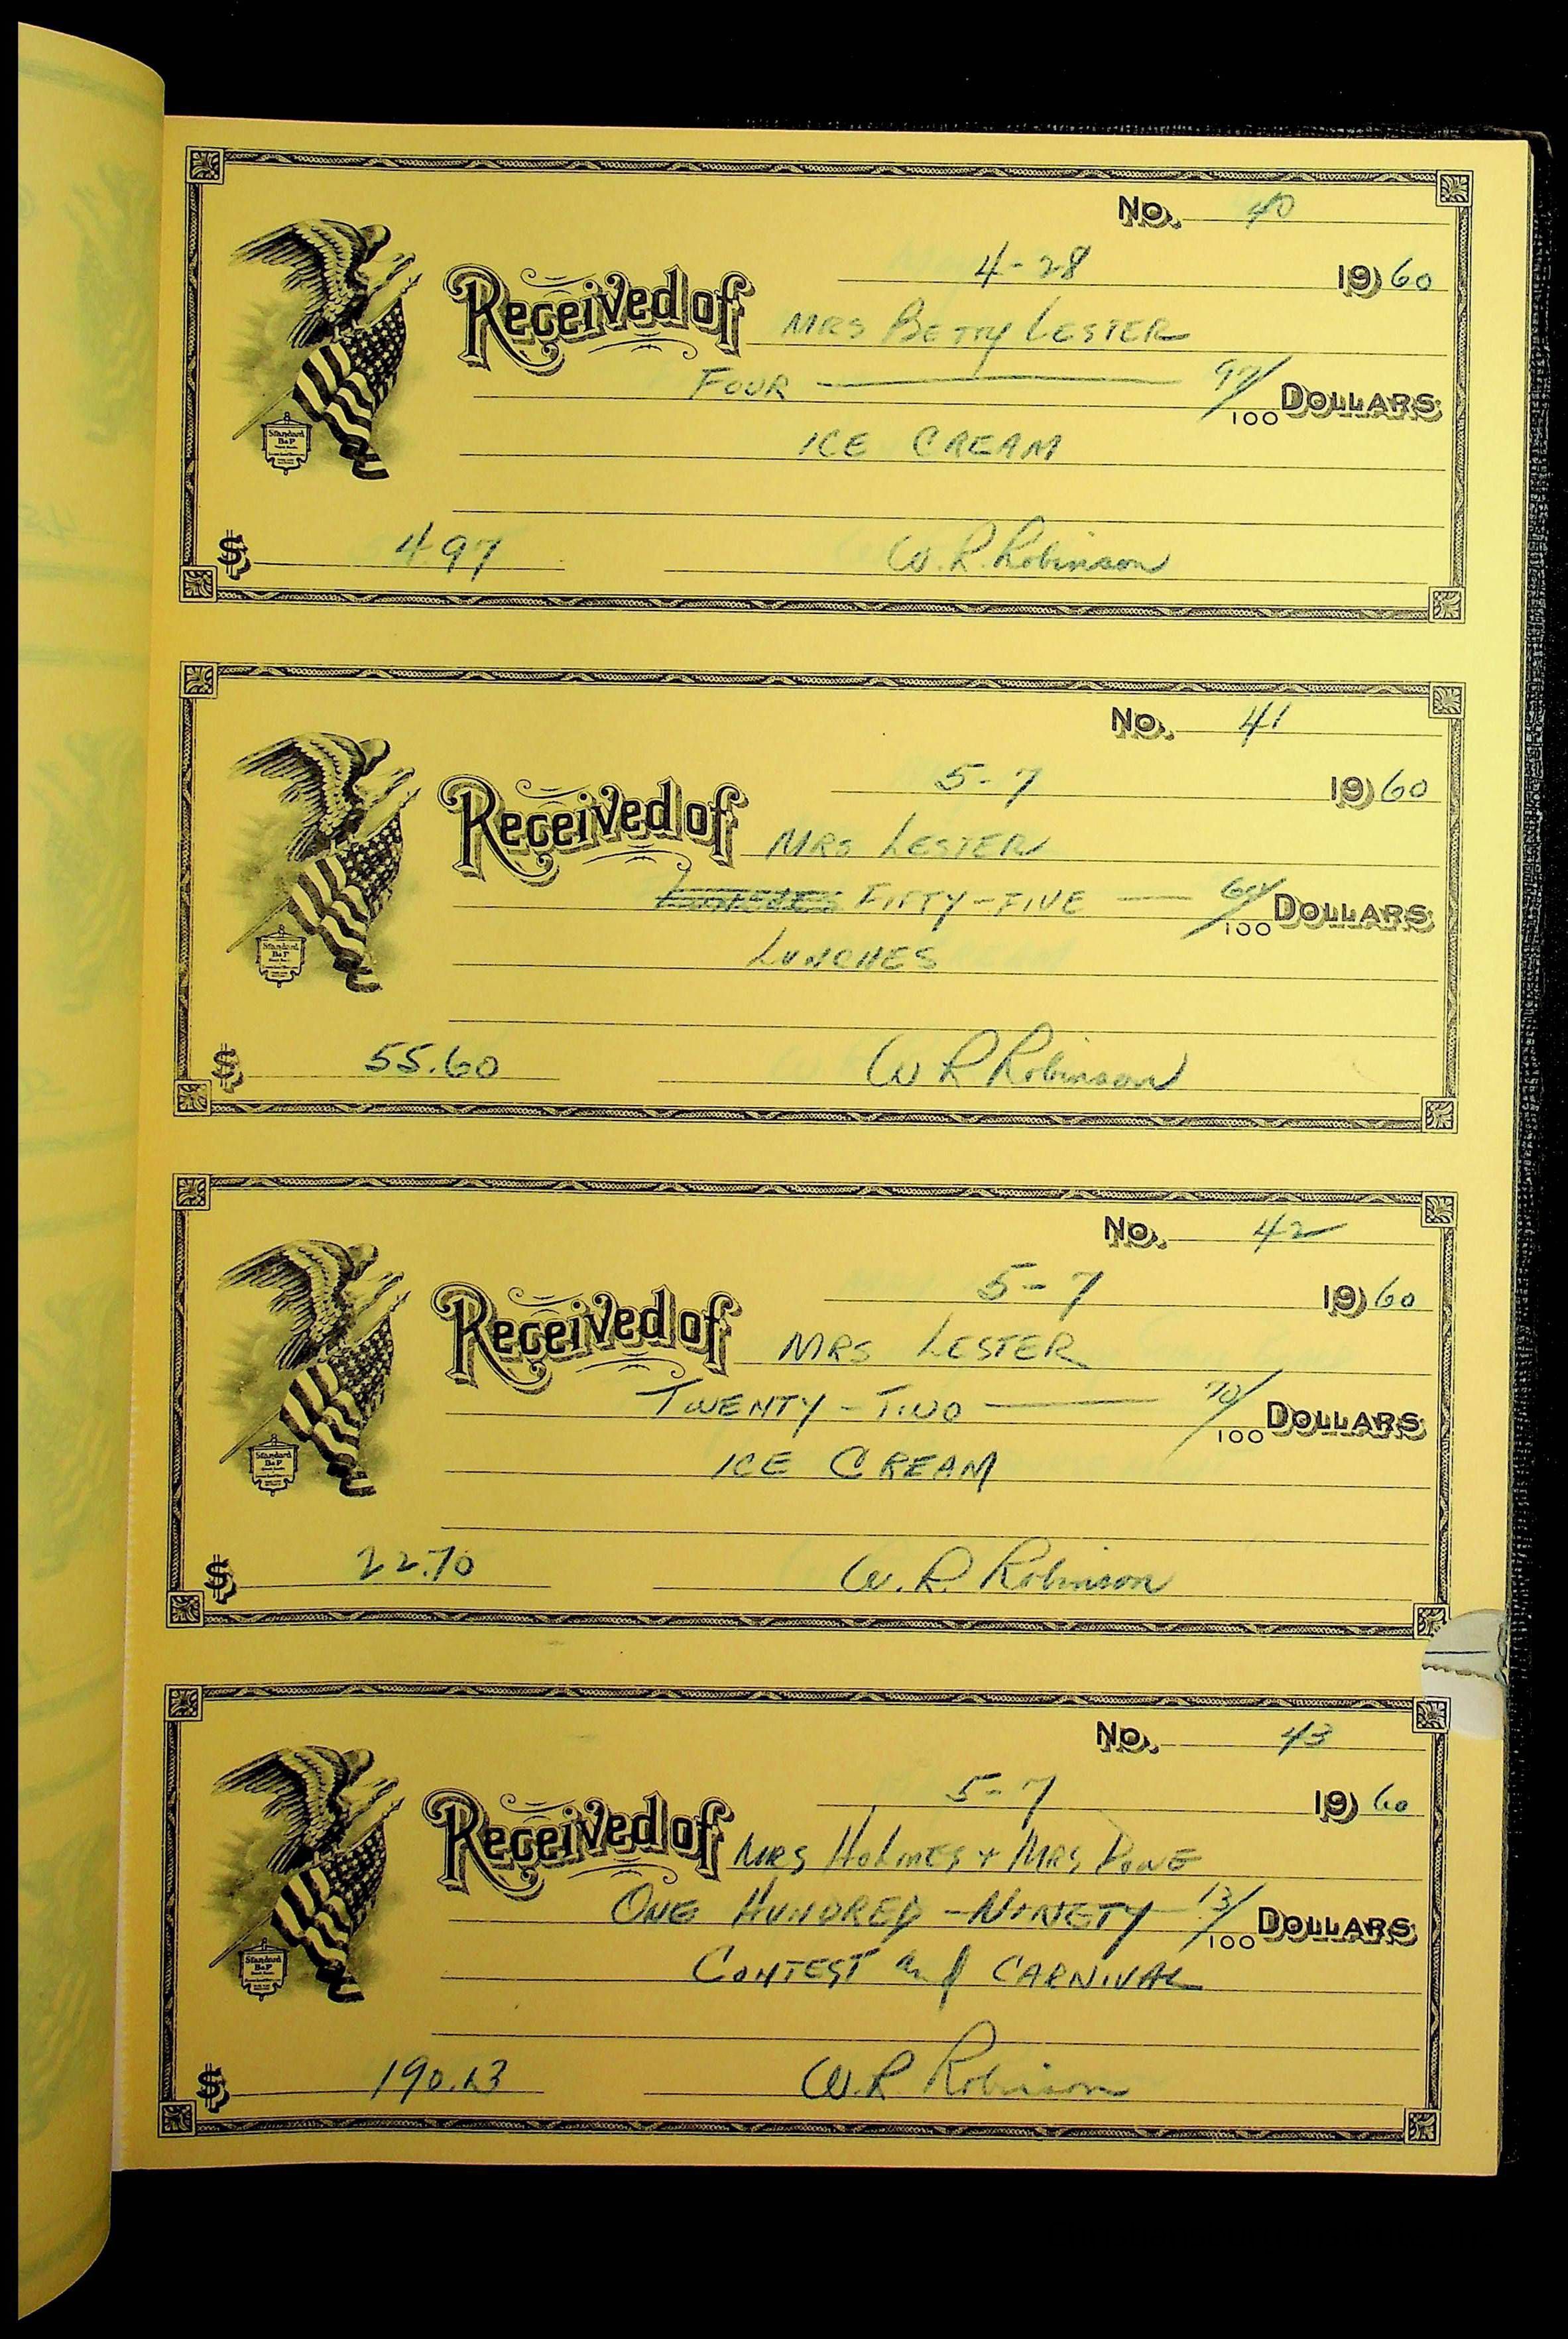 No. 40
4-28 1960
Received of MRS BETTY LESTER
FOUR — 97/100 DOLLARS
ICE CREAM
$ 4.97 W. R. Robinson
Standard
B&P
No. 41
5-7 1960
Received of MRS LESTER
FIFTY-FIVE — 60/100 DOLLARS
LUNCHES
$ 55.60 W R Robinson
Standard
B&P
No. 42
5-7 1960
Received of MRS LESTER
TWENTY-TWO — 70/100 DOLLARS
ICE CREAM
$ 22.70 W. R. Robinson
Standard
B&P
No. 43
5-7 1960
Received of MRS HOLMES + MRS
ONE HUNDRED-NINETY- 13/100 DOLLARS
CONTEST and CARNIVAL
$ 190.13 W. R. Robinson
Standard
B&P